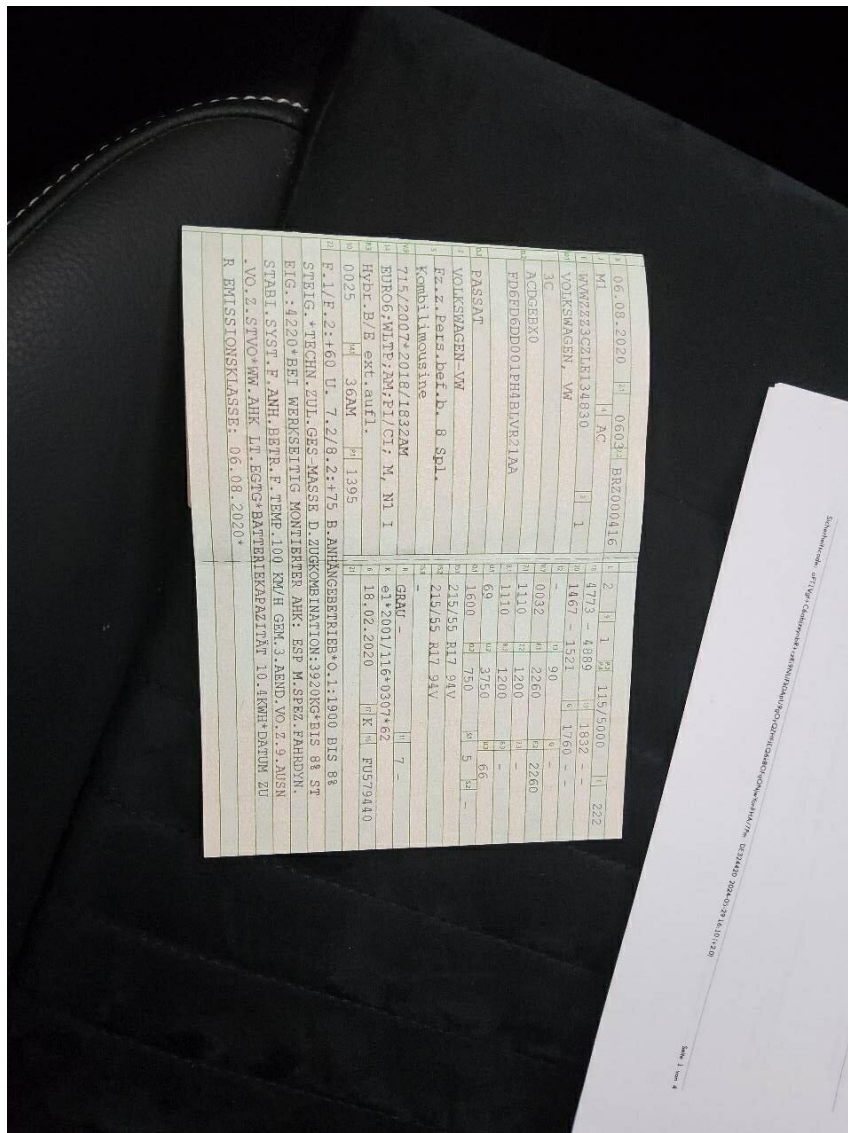 B 06.08.2020 2.1 0603 2.2 BRZ000416
J M1 4 AC
E WVWZZZ3CZLE134830 3 1
D.1 VOLKSWAGEN, VW
3C
D.2 ACDGEBX0
FD6FD6DD001PH4BLVR21AA
D.3 PASSAT
2 VOLKSWAGEN-VW
5 Fz.z.Pers.bef.b. 8 Spl.
Kombilimousine
V.9 715/2007*2018/1832AM
14 EURO6;WLTP;AM;PI/CI; M, N1 I
P.3 Hybr.B/E ext.aufl.
10 0025 14.1 36AM P.1 1395
L 2 9 1 P.2 P.4 115/5000 T 222
18 4773 - 4889 19 1832 - -
20 1467 - 1521 G 1760 - -
12 - 13 90 Q -
V.7 0032 F.1 2260 F.2 2260
7.1 1110 7.2 1200 7.3 -
8.1 1110 8.2 1200 8.3 -
U.1 69 U.2 3750 U.3 66
O.1 1600 O.2 750 S.1 5 S.2 -
15.1 215/55 R17 94V
15.2 215/55 R17 94V
15.3 -
R GRAU - 11 7 -
K e1*2001/116*0307*62
6 18.02.2020 17 K 16 FU579440
21
22 F.1/F.2:+60 U. 7.2/8.2:+75 B.ANHÄNGEBETRIEB*O.1:1900 BIS 8%
STEIG.*TECHN.ZUL.GES-MASSE D.ZUGKOMBINATION:3920KG*BIS 8% ST
EIG.:4220*BEI WERKSEITIG MONTIERTER AHK: ESP M.SPEZ.FAHRDYN.
STABI.SYST.F.ANH.BETR.F.TEMP.100 KM/H GEM.3.AEND.VO.Z.9.AUSN
.VO.Z.STVO*WW.AHK LT.EGTG*BATTERIEKAPAZITÄT 10.4KWH*DATUM ZU
R EMISSIONSKLASSE: 06.08.2020*
Sicherheitscode: DE328420 2024-05-29 16:10 (+2.0)
Seite 1 von 4